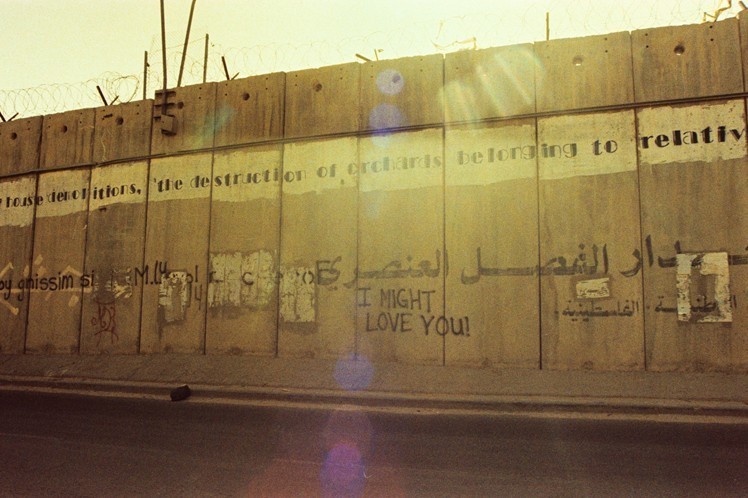 house demolitions, 'the destruction of orchards belonging to relativ
جدار الفصل العنصري
الفلسطينية
by gnissim si
I MIGHT
LOVE YOU!